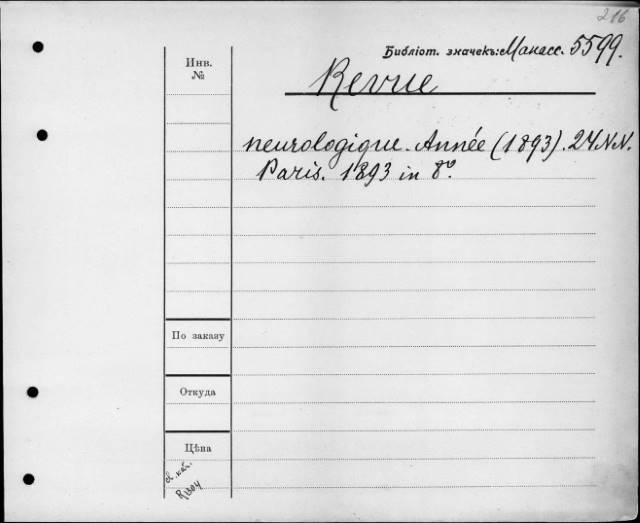 216
Библіот. значекъ: Манасс. 5599.
Инв.
№
Revue
neurologique. Année (1893). 24 N.N.
Paris. 1893 in 8º.
По заказу
Откуда
Цѣна